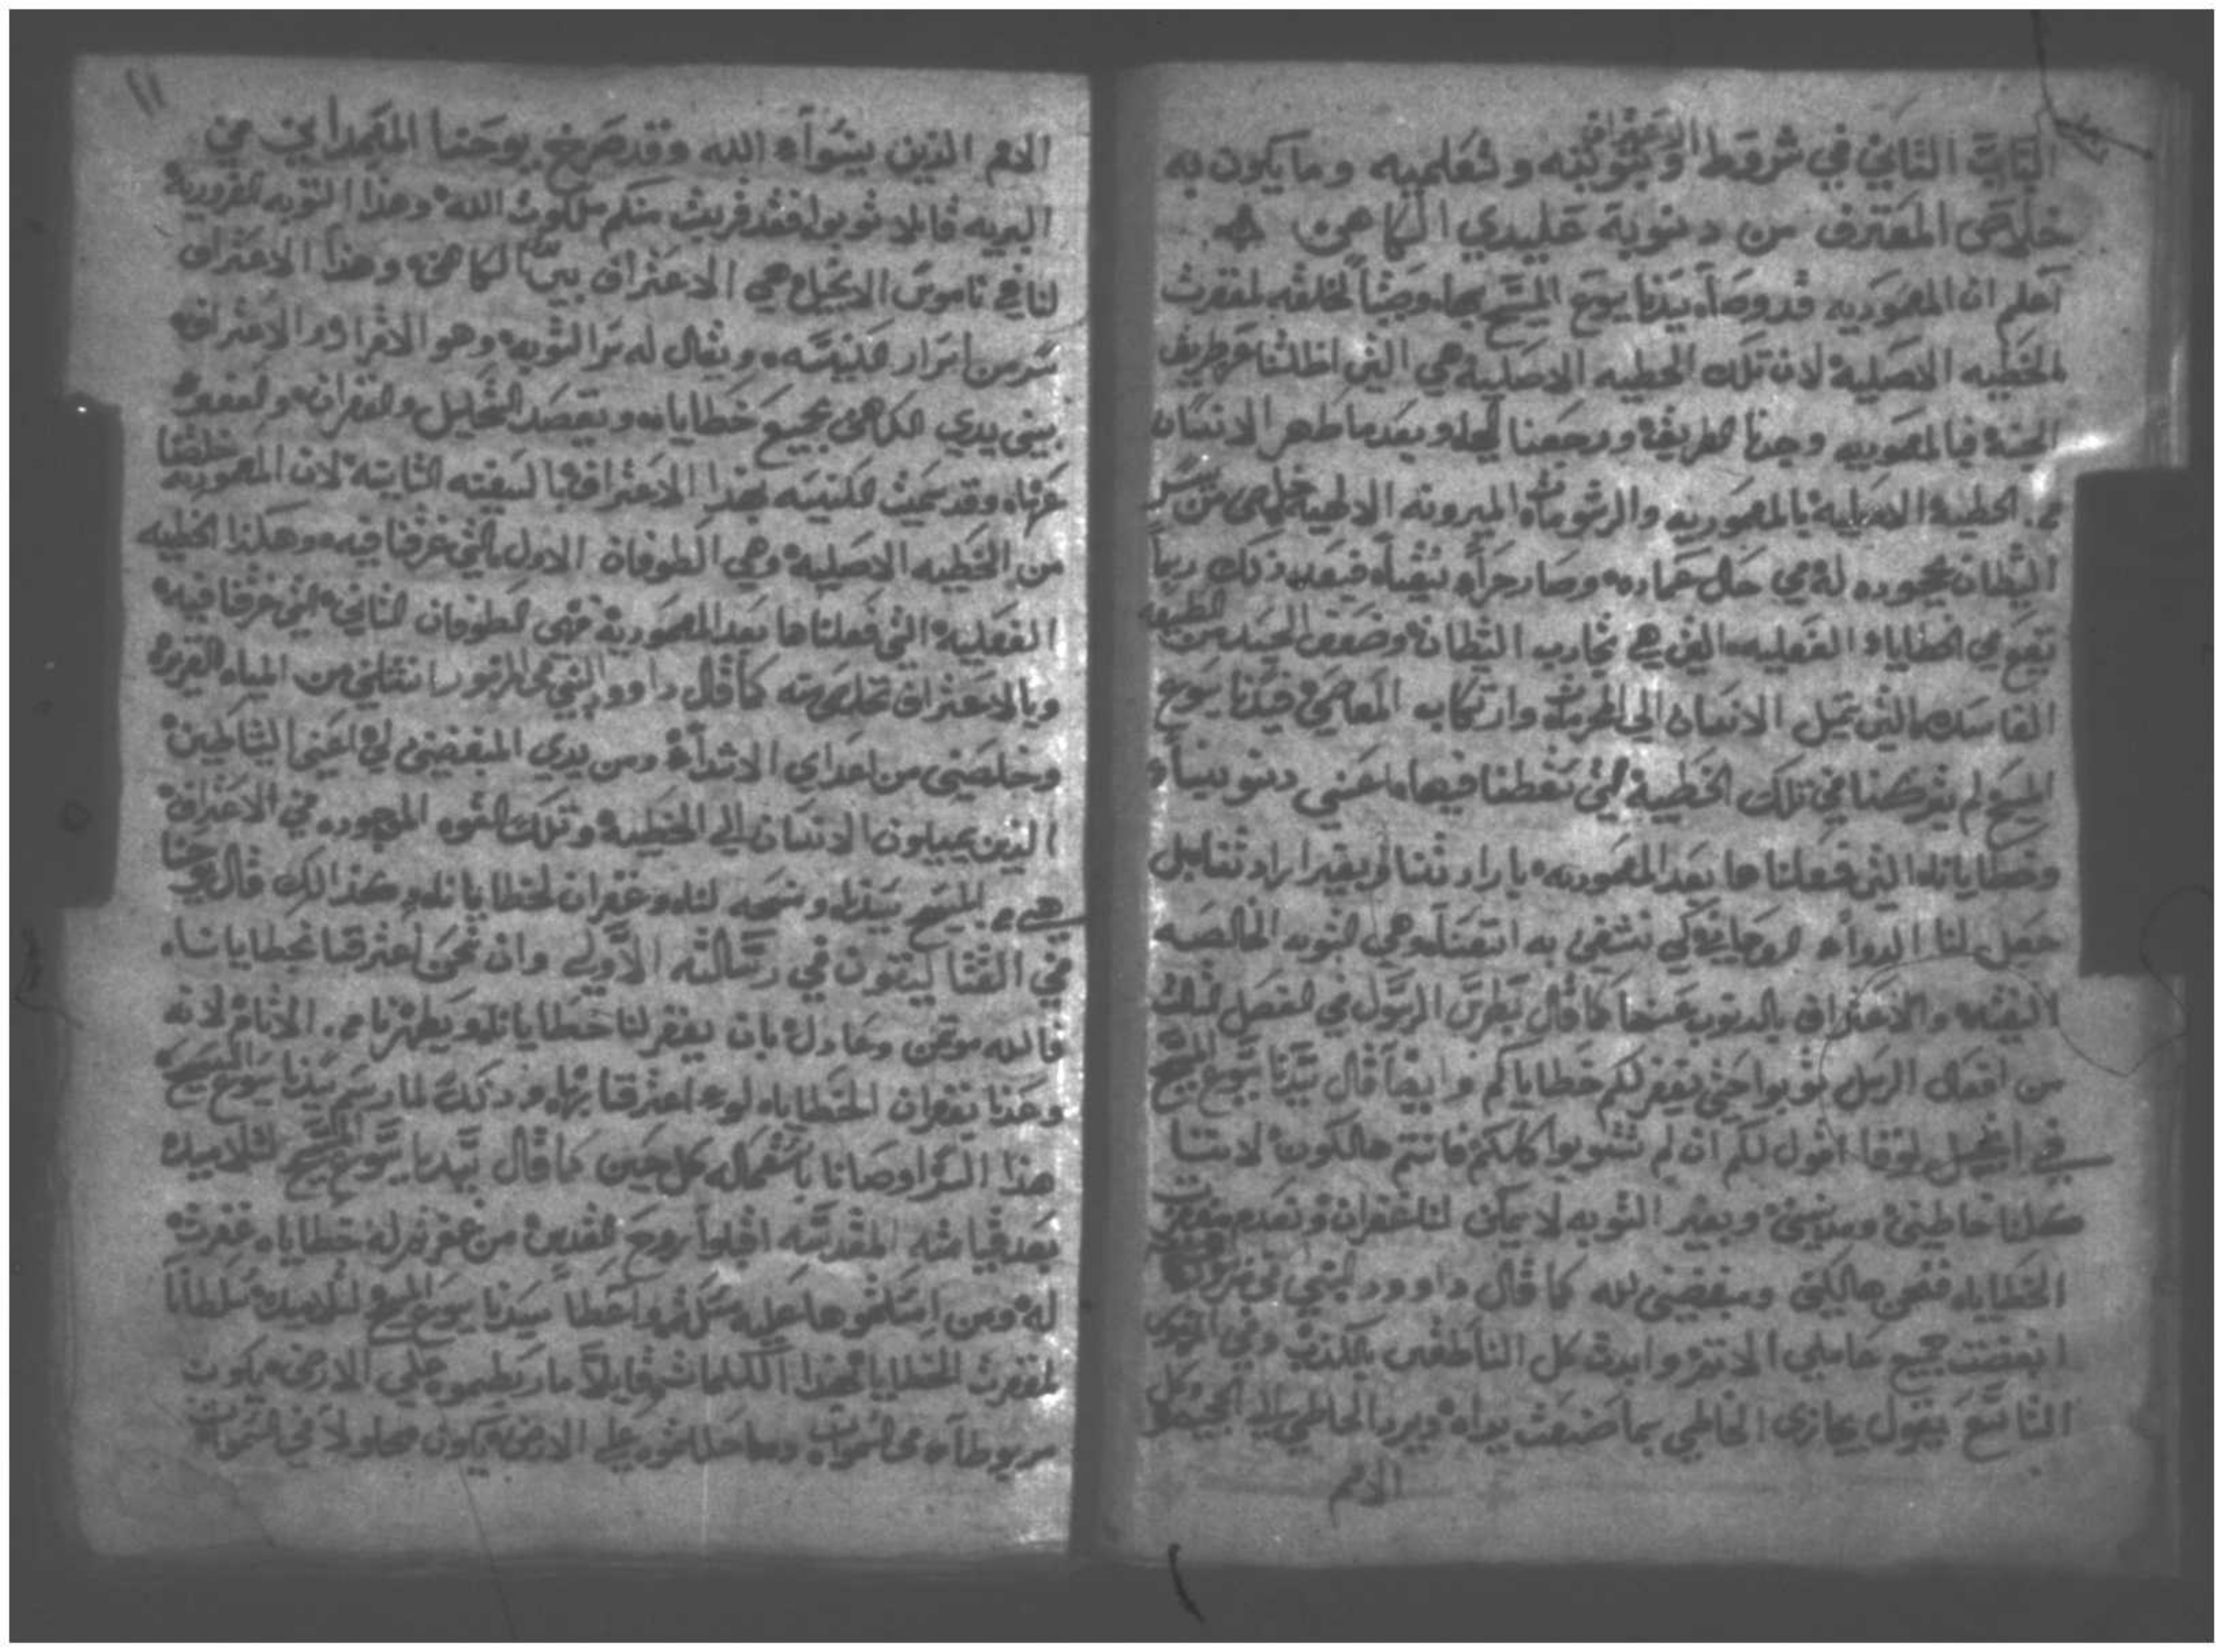 الباب الثاني في شروط الاعتراف وبتوبته وتعليمه وما يكون به
خلاص المعترف من دنوبه عليدي الكاهن
اعلم ان المعموديه قد وضعها سيدنا يسوع المسيح لمغفرت
الخطيه الاصليه لان تلك الخطيه الاصليه هي التي اظلتنا عن طريق
الجنه فبالمعموديه وجدنا الطريق ورجعنا وبعد ما طهر الانسان
من الخطيه الاصليه بالمعموديه والرشومات الميرونه الالهيه خلص من
الشيطان بجحوده له في حال عماده وصار فبعد ذلك ربما
يقع في الخطايا الفعليه التي هي تجارب الشيطان وضعف الجسد من الطبيعه
الفاسده التي تميل الانسان الي وارتكاب المعاصي فسيدنا يسوع
المسيح لم يتركنا في تلك الخطيه التي سقطنا فيها اعني دنوبنا
وخطايانا التي فعلناها بعد المعموديه بارادتنا او بغير ارادتنا بل
جعل لنا الدواء الروحاني لكي نشفي به انفسنا وهي التوبه الخالصه
النقيه والاعتراف بالدنوب عنها كما قال بطرس الرسول في الفصل الثالث
من افعال الرسل توبوا حتي يغفر لكم خطاياكم وايضا قال سيدنا يسوع المسيح
في انجيل لوقا اقول لكم ان لم تتوبوا كلكم فانتم هالكون لاننا
كلنا خاطيين ومدنبين وبغير التوبه لا يمكن لنا غفران وبعدم مغفرت
الخطايا فنحن هالكين ومبغضين لله كما قال داوود النبي في مزموره
ابغضت جميع عاملي الاتم وابدت كل الناطقين بالكذب وفي المزمور
التاسع يقول يجازى الخاطي بما صنعت يداه ويرد الخاطي الي الجحيم وكل
الامم
١١
الامم الذين ينسوا الله وقد صرخ يوحنا المعمداني في
البريه قايلا توبوا فقد قربت منكم ملكوت الله وهذا التوبه الضروريه
لنا في ناموس الانجيل هي الاعتراف بين يدي الكاهن وهذا الاعتراف
سر من اسرار الكنيسه ويقال له سر التوبه وهو الاقرار والاعتراف
بين يدي الكاهن بجميع خطاياه ويقصد التحليل والغفران والمغفره
عنها وقد سميت الكنيسه بهذا الاعتراف بالسفينه الثانيه لان المعموديه خلصتنا
من الخطيه الاصليه وهي الطوفان الاول التي غرقنا فيه وهكذا الخطيه
الفعليه التي فعلناها بعد المعموديه فهي الطوفان الثاني التي غرقنا فيه
وبالاعتراف نخلص منه كما قال داوود النبي في المزمور انتشلني من المياه الغزيره
وخلصني من اعداي الاشداء ومن يدي المبغضين لي اعني الشياطين
الذين يميلون الانسان الي الخطيه وتلك القوه الموجوده في الاعتراف
هي من المسيح سيدنا ومنحه لنا وغفران لخطايانا وكذالك قال يوحنا
في القتاليقون في رسالته الاولي وان نحن اعترفنا بخطايانا
فالله موتمن وعادل بان يغفر لنا خطايانا ويطهرنا من الاتام لانه
وعدنا بغفران الخطايا لو اعترفنا بها وذلك لما رسم سيدنا يسوع المسيح
هذا السر اوصانا باستعماله كل حين كما قال سيدنا يسوع المسيح لتلاميذه
بعد قيامته المقدسه اقبلوا روح القدس من غفرتم له خطاياه غفرت
له ومن امسكتموها عليه مسكت واعطا سيدنا يسوع المسيح لتلاميذه سلطانا
لمغفرت الخطايا بهذا الكلمات قايلا ما ربطموه علي الارض يكون
مربوطا في السموات وما حللتموه علي الارض يكون محلولا في السموات